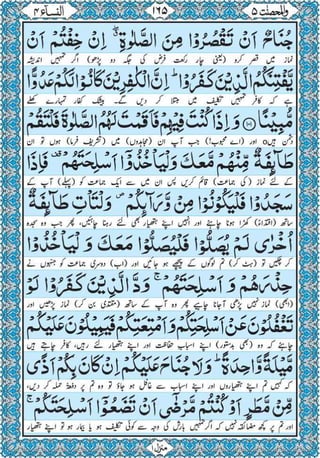 النسآء ٤ ١٦٥ والمحصنت ٥
جُنَاحٌ اَنْ تَقْصُرُوْا مِنَ الصَّلٰوةِ ۖ اِنْ خِفْتُمْ اَنْ
نماز میں قصر کرو (یعنی چار رکعت فرض کی جگہ دو پڑھو) اگر تمہیں اندیشہ
يَّفْتِنَكُمُ الَّذِيْنَ كَفَرُوْا ؕ اِنَّ الْكٰفِرِيْنَ كَانُوْا لَكُمْ عَدُوًّا
ہے کہ کافر تمہیں تکلیف میں مبتلا کر دیں گے۔ بیشک کفار تمہارے کھلے
مُّبِيْنًا ﴿۱۰۱﴾ وَاِذَا كُنْتَ فِيْهِمْ فَاَقَمْتَ لَهُمُ الصَّلٰوةَ فَلْتَقُمْ
دشمن ہیں اور (اے محبوب!) جب آپ ان (مجاہدوں) میں (تشریف فرما) ہوں تو ان
طَآئِفَةٌ مِّنْهُمْ مَّعَكَ وَلْيَاْخُذُوْۤا اَسْلِحَتَهُمْ ۟ فَاِذَا
کے لئے نماز (کی جماعت) قائم کریں پس ان میں سے ایک جماعت کو (پہلے) آپ کے
سَجَدُوْا فَلْيَكُوْنُوْا مِنْ وَّرَآئِكُمْ ۪ وَلْتَاْتِ طَآئِفَةٌ
ساتھ (اقتداءً) کھڑا ہونا چاہئے اور انہیں اپنے ہتھیار بھی لئے رہنا چاہئیں، پھر جب وہ سجدہ
اُخْرٰى لَمْ يُصَلُّوْا فَلْيُصَلُّوْا مَعَكَ وَلْيَاْخُذُوْا
کر چکیں تو (ہٹ کر) تم لوگوں کے پیچھے ہو جائیں اور (اب) دوسری جماعت کو جنہوں نے
حِذْرَهُمْ وَاَسْلِحَتَهُمْ ۚ وَدَّ الَّذِيْنَ كَفَرُوْا لَوْ
(ابھی) نماز نہیں پڑھی آجانا چاہیے پھر وہ آپ کے ساتھ (مقتدی بن کر) نماز پڑھیں اور
تَغْفُلُوْنَ عَنْ اَسْلِحَتِكُمْ وَاَمْتِعَتِكُمْ فَيَمِيْلُوْنَ عَلَيْكُمْ
چاہئے کہ وہ (بھی بدستور) اپنے اسباب حفاظت اور اپنے ہتھیار لئے رہیں، کافر چاہتے ہیں
مَّيْلَةً وَّاحِدَةً ؕ وَلَا جُنَاحَ عَلَيْكُمْ اِنْ كَانَ بِكُمْ اَذًى
کہ کہیں تم اپنے ہتھیاروں اور اپنے اسباب سے غافل ہو جاؤ تو وہ تم پر دفعۃً حملہ کر دیں،
مِّنْ مَّطَرٍ اَوْ كُنْتُمْ مَّرْضٰۤى اَنْ تَضَعُوْۤا اَسْلِحَتَكُمْ ۚ
اور تم پر کچھ مضائقہ نہیں کہ اگر تمہیں بارش کی وجہ سے کوئی تکلیف ہو یا بیمار ہو تو اپنے ہتھیار
منزل